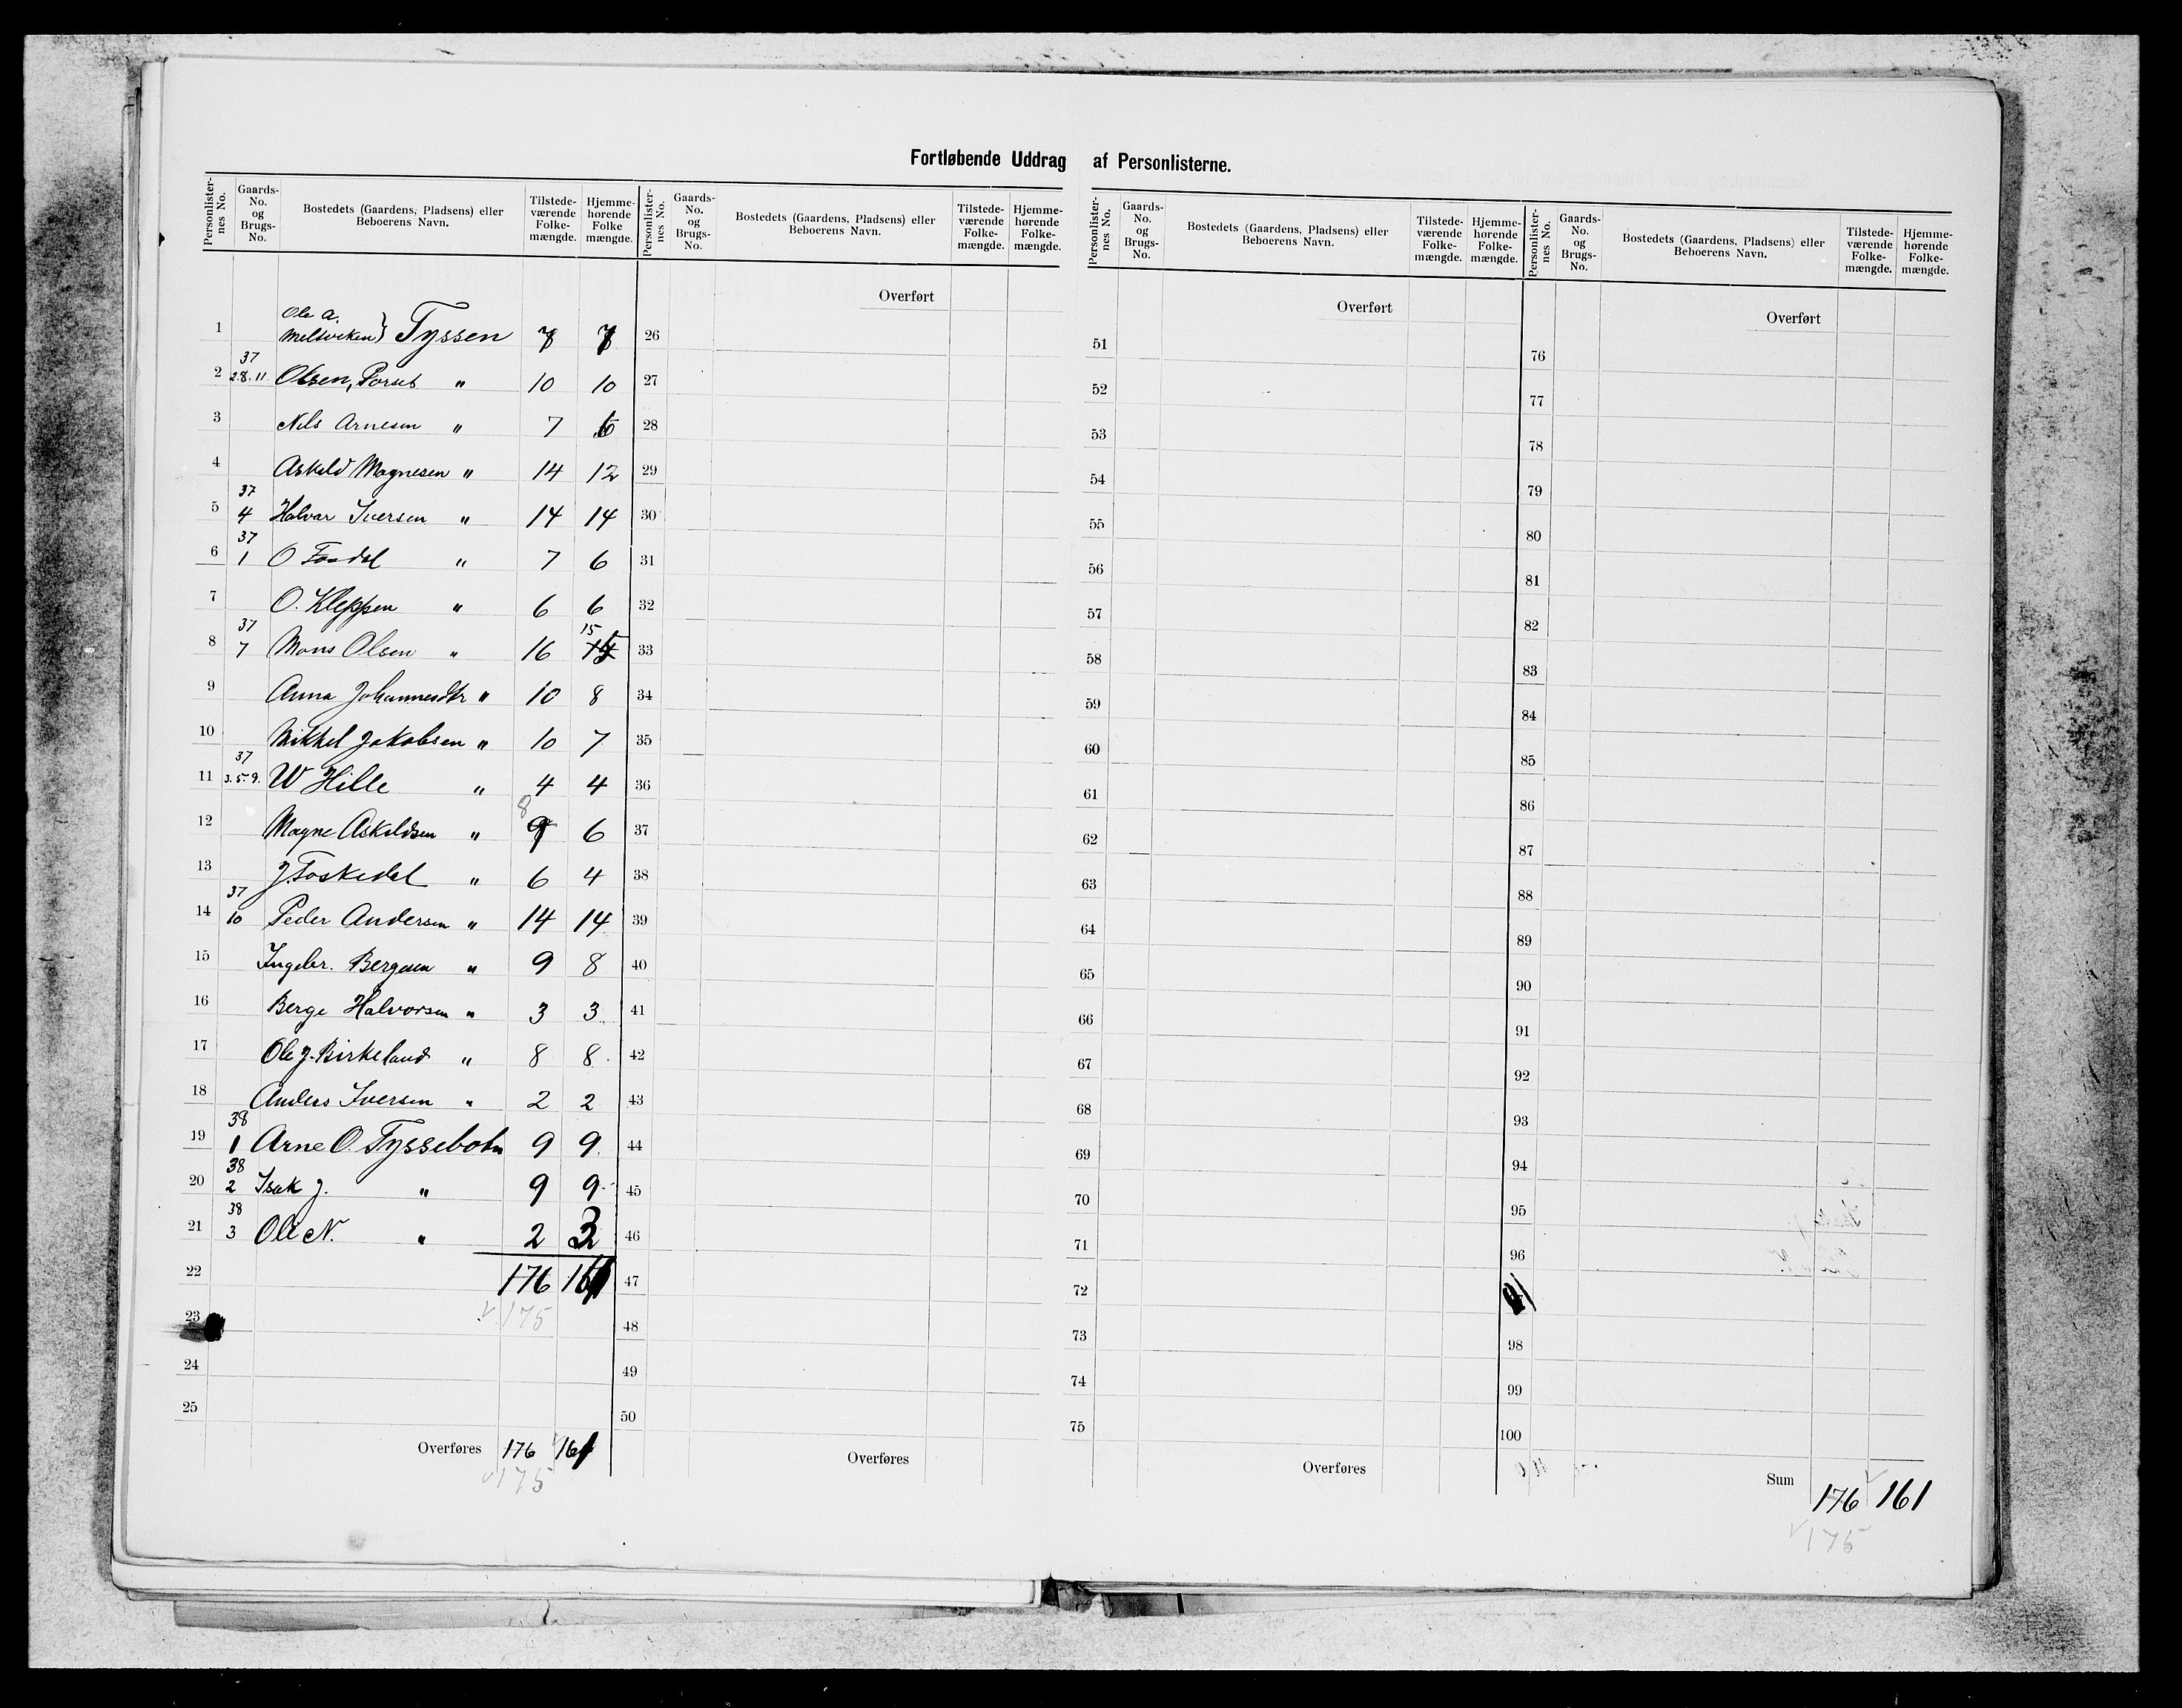 Fortløbende Uddrag af Personlisterne.
Personlister-nes No. | Gaards-No. og Brugs-No. | Bostedets (Gaardens, Pladsens) eller Beboerens Navn. | Tilstede-værende Folke-mængde. | Hjemme-hørende Folke mængde.
Personlister-nes No. | Gaards-No. og Brugs-No. | Bostedets (Gaardens, Pladsens) eller Beboerens Navn. | Tilstede-værende Folke-mængde. | Hjemme-hørende Folke-mængde.
Personlister-nes No. | Gaards-No. og Brugs-No. | Bostedets (Gaardens, Pladsens) eller Beboerens Navn. | Tilstede-værende Folke-mængde. | Hjemme-hørende Folke-mængde.
Personlister-nes No. | Gaards-No. og Brugs-No. | Bostedets (Gaardens, Pladsens) eller Beboerens Navn. | Tilstede-værende Folke-mængde. | Hjemme-hørende Folke-mængde.
Ole A.
1 Meltveken } Tyssen
2 37 2.8.11. Olsen, Porset " 10 10
3 Nils Arnesen " 7
4 Askeld Magnesen " 14 12
5 37 4 Halvar Iversen " 14 14
6 37 1 O Fosdal " 7 6
7 O. Kleppen " 6 6
8 37 7 Mons Olsen " 16 15
9 Anna Johannesdtr " 10 8
10 Mikkel Jakobsen " 10 7
11 37 3.5.9. W Hille " 4 4
12 Magne Askeldsen " 8 9 6
13 J. Foskedal " 6 4
14 37 10 Peder Andersen " 14 14
15 Ingebr. Bergesen " 9 8
16 Berge Halvorsen " 3 3
17 Ole J. Birkeland " 8 8
18 Anders Iversen " 2 2
19 38 1 Arne O. Tyssebotn 9 9
20 38 2 Isak J. " 9 9
21 38 3 Ole N. " 2 3
22 176 161
175
23
24
25
Overføres 176 161
175
Overført
26
27
28
29
30
31
32
33
34
35
36
37
38
39
40
41
42
43
44
45
46
47
48
49
50
Overføres
Overført
51
52
53
54
55
56
57
58
59
60
61
62
63
64
65
66
67
68
69
70
71
72
73
74
75
Overføres
Overført
76
77
78
79
80
81
82
83
84
85
86
87
88
89
90
91
92
93
94
95
96
98
99
100
Sum 176 161
175